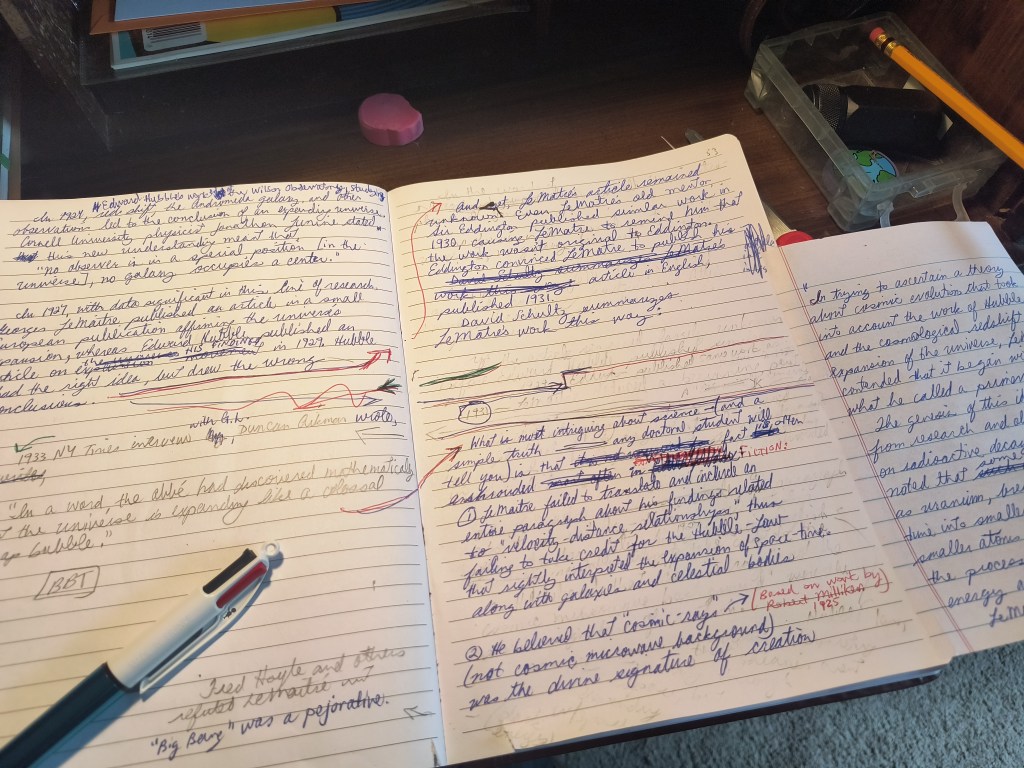 "Edward Hubble's work @ Mt Wilson Observatory, studying
In 1924, red shift in Andromeda galaxy and other
observations led to the conclusion of an expanding universe.
Cornell University physicist Jonathan Lunine stated
this new understanding meant that
"no observer is in a special position [in the
universe], no galaxy occupies a center."
In 1927, with data significant in this line of research,
Georges LeMaitre published an article in a small
European publication affirming the universe's
expansion, whereas Edward Hubble published an
article on HIS FINDINGS in 1929. Hubble
had the right idea, but drew the wrong
conclusions.
1933 NY Times interview with G.L., Duncan Aikman wrote,
"In a word, the abbé had discovered mathematically
the universe is expanding like a colossal
bubble."
BBT
Fred Hoyle and others
refuted LeMaitre and
"Big Bang" was a pejorative.
63
And yet, LeMaitre's article remained
unknown. Even LeMaitre's old mentor,
Sir Eddington published similar work in
1930, causing LeMaitre to remind him that
the work wasn't original to Eddington.
Eddington convinced LeMaitre to publish his
David Schultz summarizes LeMaitre's
work this way: article in English,
published 1931.
David Schultz summarizes
LeMaitre's work this way:
1931
What is most intriguing about science - (and a
simple truth any doctoral student will
tell you) is that fact is often
enshrouded in FICTION:
① LeMaitre failed to translate and include an
entire paragraph about his findings related
to velocity-distance relationships, thus
failing to take credit for the Hubble-Law
that rightly interpreted the expansion of space-time
along with galaxies and celestial bodies
② He believed that "cosmic-rays" → [Based on work by
Robert Millikan
1925]
(not cosmic microwave background)
was the divine signature of creation
"In trying to ascertain a theory
about cosmic evolution that took
into account the work of Hubble
and the cosmological redshift
expansion of the universe,
contended that it began wi
what he called a primev
The genesis of this id
from research and el
on radioactive decay
noted that some
as uranium, brea
time into smaller
smaller atoms
the process
energy
LeM